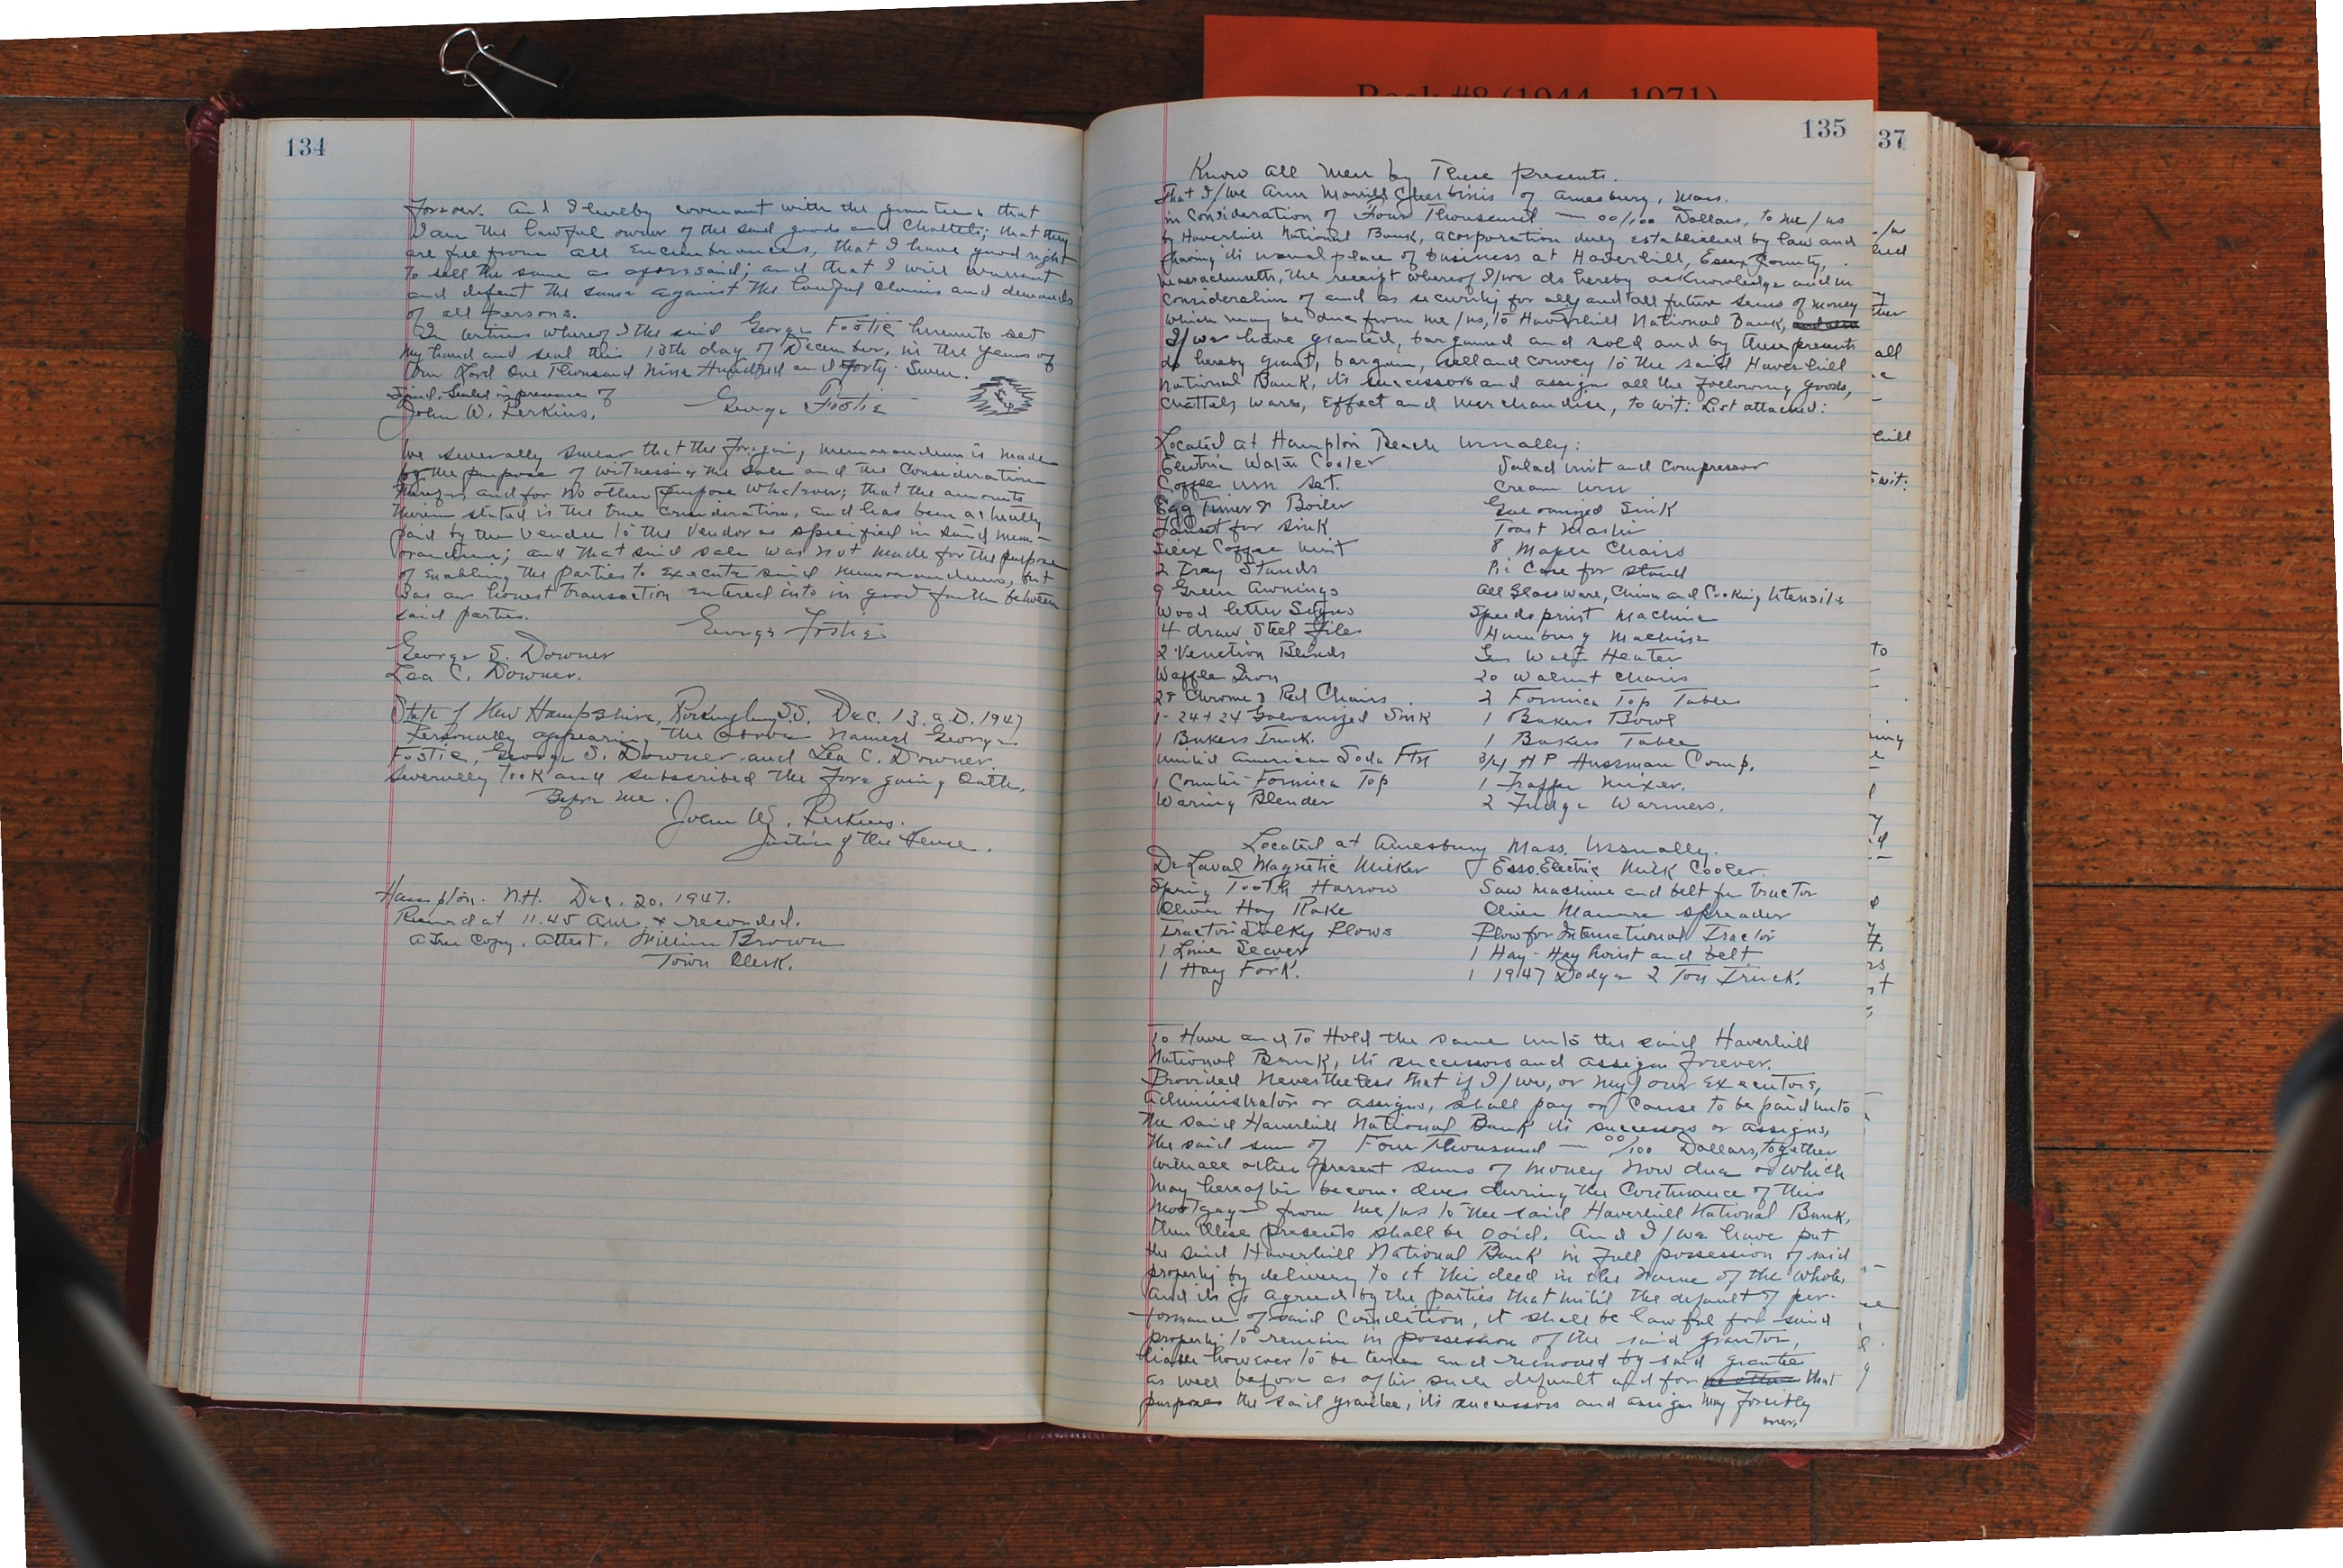 Book #8 (1944 - 1971)
134
forever. And I hereby covenant with the grantees that
I am the lawful owner of the said goods and chattels; that they
are free from all Encumbrances, that I have good right
to sell the same as aforesaid; and that I will warrant
and defent the same against the lawful claims and demands
of all persons.
In witness whereof I the said George Fostie hereunto set
my hand and seal this 13th day of December, in the years of
Our Lord One Thousand Nine Hundred and forty Seven.
Sind, Sealed in presence of
John W. Perkins.
George Fostie
Seal
We severally swear that the foregoing memorandum is made
for the purpose of witnessing the sale and the consideration
thereof, and for no other purpose whatsoever; that the amounts
therein stated is the true consideration, and has been actually
paid by the Vendee to the Vendor as specified in said mem-
orandum; and that said sale was not made for the purpose
of enabling the parties to execute said memorandum, but
was an honest transaction entered into in good faith between
said parties.
George Fostie
George S. Downer
Lea C. Downer.
State of New Hampshire, Rockingham S.S. Dec. 13. A.D. 1947
Personally appearing the above named George
Fostie, George S. Downer and Lea C. Downer.
Severally took and subscribed the foregoing Oath.
Before me.
John W. Perkins.
Justice of the Peace.
Hampton. N.H. Dec. 20, 1947.
Received at 11.45 A.M. & recorded.
A True Copy. Attest. William Brown
Town Clerk.
135
Know All Men by These Presents.
That I/We Ann Morrill of Amesbury, Mass.
in consideration of Four Thousand — 00/100 Dollars, to me/us
by Haverhill National Bank, a corporation duly established by law and
having its usual place of business at Haverhill, Essex County,
Massachusetts, the receipt whereof I/we do hereby acknowledge and in
consideration of and as security for any and all future sums of money
which may be due from me/us, to Haverhill National Bank,
I/we have granted, bargained and sold and by these presents
do hereby grant, bargain, sell and convey to the said Haverhill
National Bank, its successors and assigns all the following goods,
chattels, wares, Effect and Merchandise, to wit: List attached:
Located at Hampton Beach usually:
Electric Water Cooler Salad unit and Compressor
Coffee urn set. Cream urn
Egg Timer & Boiler Galvanized Sink
Fauset for sink Toast Master
Silex Coffee unit 8 Maple Chairs
2 Tray Stands Pie Case for stand
9 Green Awnings All Glassware, China and Cooking Utensils
Wood letter Signs Speedsprint Machine
4 draw Steel files Hamburg Machine
2 Venetion Blinds Gas Wall Heater
Waffle Iron 20 Walnut Chairs
28 Chrome & Red Chairs 2 Formica Top Tables
1-24+24 Galvanized Sink 1 Bakers Bowl
1 Bakers Truck. 1 Bakers Table
United American Soda Ftn 3/4 HP Hussman Comp.
1 Counter Formica Top 1 Frappe Mixer.
Waring Blender 2 Fudge Warmers.
Located at Amesbury Mass. Usually.
De Laval Magnetic Milker Esso Electric Milk Cooler
Spring Tooth Harrow Saw machine and belt for tractor
Oliver Hay Rake Oliver Manure spreader
Tractor Sulky Plows Plow for International Tractor
1 Lime 1 Hay-Hay hoist and belt
1 Hay Fork. 1 1947 Dodge 2 Ton Truck.
To Have and To Hold the same unto the said Haverhill
National Bank, its successors and assigns forever.
Provided Nevertheless that if I/we, or my/our Executors,
administrators or assigns, shall pay or cause to be paid unto
the said Haverhill National Bank its successors or assigns,
the said sum of Four Thousand — 00/100 Dollars, together
with all other present sums of money now due or which
may hereafter become dues during the Continuance of this
Mortgage from me/us to the said Haverhill National Bank,
then these presents shall be void. And I/we have put
the said Haverhill National Bank in full possession of said
property by delivery to it this deed in the name of the whole,
and it is agreed by the parties that until the default of per-
formance of said Condition, it shall be lawful for said
property to remain in possession of the said grantor,
liable however to be taken and removed by said grantee
as well before as after such default and for no other that
purposes the said grantee, its successors and assigns may forcibly
enter,
37